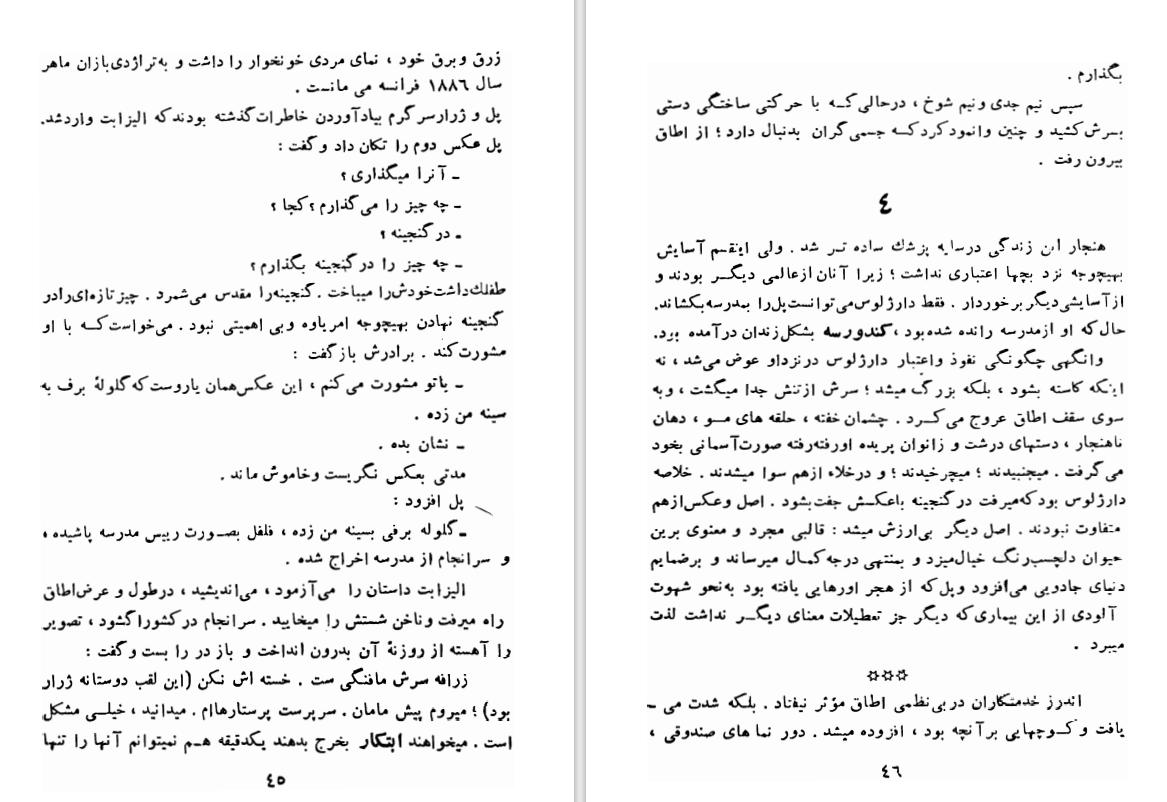 زرق وبرق خود ، نمای مردی خونخوار را داشت و به‌تراژدی‌بازان ماهر
سال ۱۸۸٦ فرانسه می مانست .
پل و ژرارسرگرم بیادآوردن خاطرات‌گذشته بودندکه الیزابت واردشد.
پل عکس دوم را تکان داد وگفت :
ـ آنرا میگذاری ؟
ـ چه چیز را می‌گذارم ؟کجا ؟
ـ درگنجینه ؟
ـ چه چیز را درگنجینه بگذارم ؟
طفلك‌داشت‌خودش‌را میباخت .گنجینه‌را مقدس می‌شمرد . چیزتازه‌ای‌رادر
گنجینه نهادن بهیچوجه امریاوه وبی اهمیتی نبود . می‌خواست‌کـه با او
مشورت‌کند . برادرش بازگفت :
ـ یاتو مشورت می‌کنم ، این عکس‌همان یاروست‌که‌گلولهٔ برف به
سینه من زده .
ـ نشان بده .
مدتی بعکس نگریست وخاموش ماند .
پل افزود :
ـ گلوله برفی بسینه من زده ، فلفل بصـورت رییس مدرسه پاشیده ،
و سرانجام از مدرسه اخراج شده .
الیزابت داستان را می‌آزمود ، می‌اندیشید ، درطول و عرض‌اطاق
راه میرفت وناخن شستش را میخایید . سرانجام درکشوراگشود ، تصویر
را آهسته از روزنهٔ آن بدرون انداخت و باز در را بست وگفت :
زرافه سرش مافنگی ست . خسته اش نکن (این لقب دوستانه ژرار
بود) ؛ میروم پیش مامان . سرپرست پرستارهاام . میدانید ، خیلـی مشکل
است . میخواهند ابتکار بخرج بدهند یکدقیقه هـم نمیتوانم آنها را تنها
٤٥
بگذارم .
سپس نیم جدی ونیم شوخ ، درحالی‌کـه با حرکتی ساختگی دستی
بـرش‌کشید و چنین وانمودکردکـه جسمی‌گران بدنبال دارد ؛ از اطاق
بیرون رفت .
٤
هنجار این زندگی درسایه پزشك ساده تـر شد . ولی اینقسم آسایش
بهیچوجه نزد بچها اعتباری نداشت ؛ زیرا آنان ازعالمی دیگـر بودند و
ازآسایشی‌دیگربرخوردار . فقط دارژلوس‌می‌توانست‌پل‌را بمدرسه‌بکشاند.
حال‌که او ازمدرسه رانده شده‌بود ،کندورسه بشکل‌زندان درآمده بود.
وانگهی چگونگی نفوذ واعتبار دارژلوس درنزداو عوض می‌شد ، نه
اینکه کاسته بشود ، بلکه بزرگ میشد ؛ سرش ازتنش جدا میگشت ، وبه
سوی سقف اطاق عروج می‌کـرد . چشمان خفته ، حلقه های مـو ، دهان
ناهنجار ، دستهای درشت و زانوان پریده اورفته‌رفته صورت‌آسمانی بخود
می‌گرفت . میجنبیدند ؛ میچرخیدند ؛ و درخلاء ازهم سوا میشدند . خلاصه
دارژلوس بودکه‌میرفت درگنجینه باعکـش جفت‌بشود . اصل وعکس‌ازهم
متفاوت نبودند . اصل دیگر بی‌ارزش میشد : قالبی مجرد و معنوی برین
حیوان دلچسب‌رنگ خیال‌میزد و بمنتهی درجه‌کمال میرساند و برضمایم
دنیای جادویی می‌افزود وپل‌که از هجر اورهایی یافته بود به‌نحو شهوت
آلودی از این بیماری‌که دیگر جز تعطیلات معنای دیگـر نداشت لذت
میبرد .
✡✡✡
اندرز خدمتکاران دربی‌نظمی اطاق مؤثر نیفتاد . بلکه شدت می ـ
یافت وکـوچهایی برآنچه بود ، افزوده میشد . دور نماهای صندوقی ،
٤٦